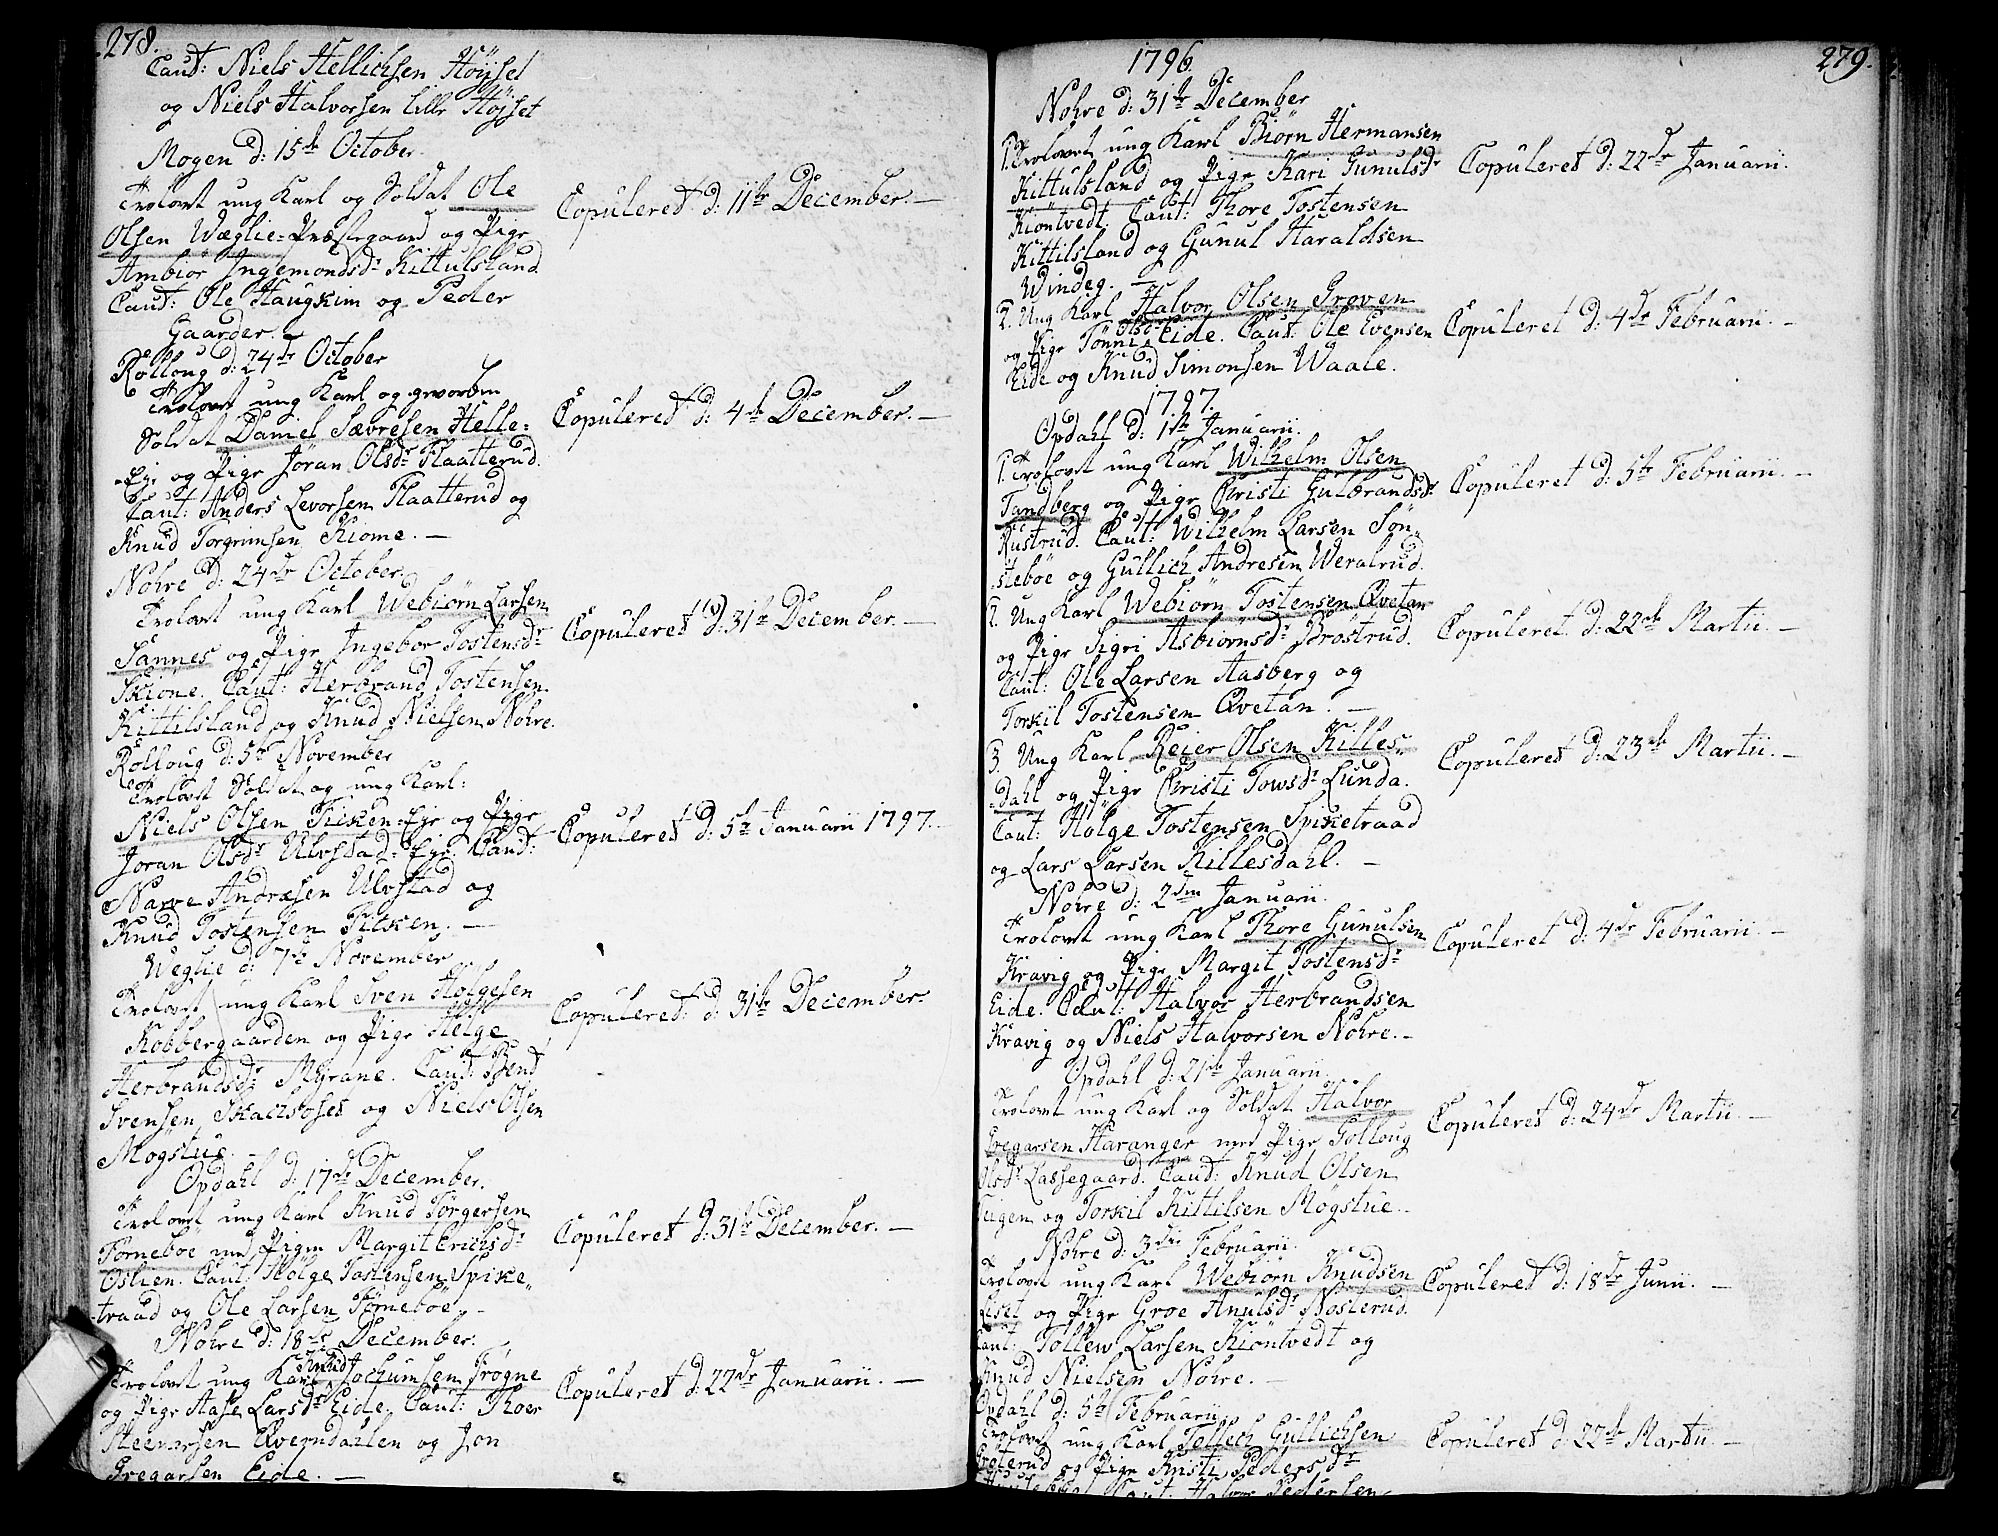 278.
Caut: Niels Hellichsen Höÿset
og Niels Halvorsen Lille Höÿset
Mogen d: 15de October.
Trolovet ung Karl og Soldat Ole
Olsen Wæglie=Præstegaard og Pige
Ambiör Ingemondsdr Kittulsland
Caut: Ole Haugkim og Peder
Gaarder. —
Copuleret d: 11te December. —
Rolloug d: 24de October
Trolovet ung Karl og gevorben
Soldat Daniel Sævresen Helle=
=Eje og Pige Jöran Olsdr Flaatterud.
Caut: Anders Levorsen Flaatterud og
Knud Torgrimsen Kiome. —
Copuleret d: 4de December. —
Nohre d: 24de October.
Trolovet ung Karl Webiörn Larsen
Sannes og Pige Ingebor Tostensdr
Skiöne. Caut: Herbrand Tostensen
Kittilsland og Knud Nielsen Nohre.
Copuleret d: 31te December. —
Rolloug d: 5te November
Trolovet Soldat og ung Karl:
Niels Olsen Fisken=Eje og Pige
Joran Olsdr Ulvstad=Eje. Caut:
Narve Andræsen Ulvstad og
Knud Tostensen Fisken. —
Copuleret d: 5te Januarii 1797.
Weglie d: 7de November
Trolovet ung Karl Sven Holgesen
Kobbergaarden og Pige Helge
Herbrandsdr Mÿrane. Caut: Svend
Svensen Skachsoset og Niels Olsen
Mogstue. —
Copuleret d: 31te December.
Opdahl d: 17de December.
Trolovet ung Karl Knud Törgersen
Törneböe med Pigen Margit Erichsdr
Oslien. Caut: Holge Tostensen Spike„
traad og Ole Larsen Törneböe. —
Copuleret d: 31te December. —
Nohre d: 18de December.
Trolovet ung Karl Knud Jochumsen Frögne
og Pige Aase Larsdr Eide. Caut: Thoer
Steenersen Qverndahlen og Jon
Gregarsen Eide. —
Copuleret d: 22de Januarii. —
279.
1796.
Nohre d: 31te December
1. Trolovet ung Karl Biörn Hermansen
Kittulsland og Pige Kari Gunulsdr
Kiöntvedt. Caut: Thore Tostensen
Kittilsland og Gunul Haraldsen
Windeg. —
Copuleret d: 22de Januarii.
2. Ung Karl Halvor Olsen Greven
og Pige Tönni Olsdr Eide. Caut: Ole Evensen
Eide og Knud Simonsen Waale.
Copuleret d: 4de Februarii. —
1797.
Opdahl d: 1te Januarii.
1. Trolovet ung Karl Wilhelm Olsen
Tandberg og Pige Christi Gulbrandsdr
Rustrud. Caut: Wilhelm Larsen Sön„
steböe og Gullich Andresen Weralrud.
Copuleret d: 5te Februarii. —
2. Ung Karl Webiörn Tostensen Qvetan
og Pige Sigri Asbiörnsdr Bröstrud.
Caut: Ole Larsen Aasberg og
Torkil Tostensen Qvetan. —
Copuleret d: 22de Martii. —
3. Ung Karl Reier Olsen Killes„
=dahl og Pige Christi Towsdr Lunda.
Caut: Holge Tostensen Spiketraad
og Lars Larsen Killesdahl. —
Copuleret d: 23de Martii. —
Nohre d: 2den Januarii.
Trolovet ung Karl Thore Gunulsen
Kravig og Pige Margit Tostensdr
Eide. Caut: Halvor Herbrandsen
Kravig og Niels Halvorsen Nohre. —
Copuleret d: 4de Februarii. —
Opdahl d: 21de Januarii.
Trolovet ung Karl og Soldat Halvor
Gregarsen Haranger med Pige Golloug
Olsdr Lassegaard. Caut: Knud Olsen
Teigen og Torkil Kittilsen Mogstue. —
Copuleret d: 24de Martii. —
Nohre d: 3die Februarii.
Trolovet ung Karl Webiörn Knudsen
Liset og Pige Groe Anulsdr Nosterud.
Caut: Tollew Larsen Kiöntvedt og
Knud Nielsen Nohre. —
Copuleret d: 18de Junii. —
Opdahl d: 5te Februarii
Trolovet ung Karl Tollech Gullichsen
og Pige Kristi Pedersdr
Caut: Halvor Pedersen
Copuleret d: 22de Martii. —